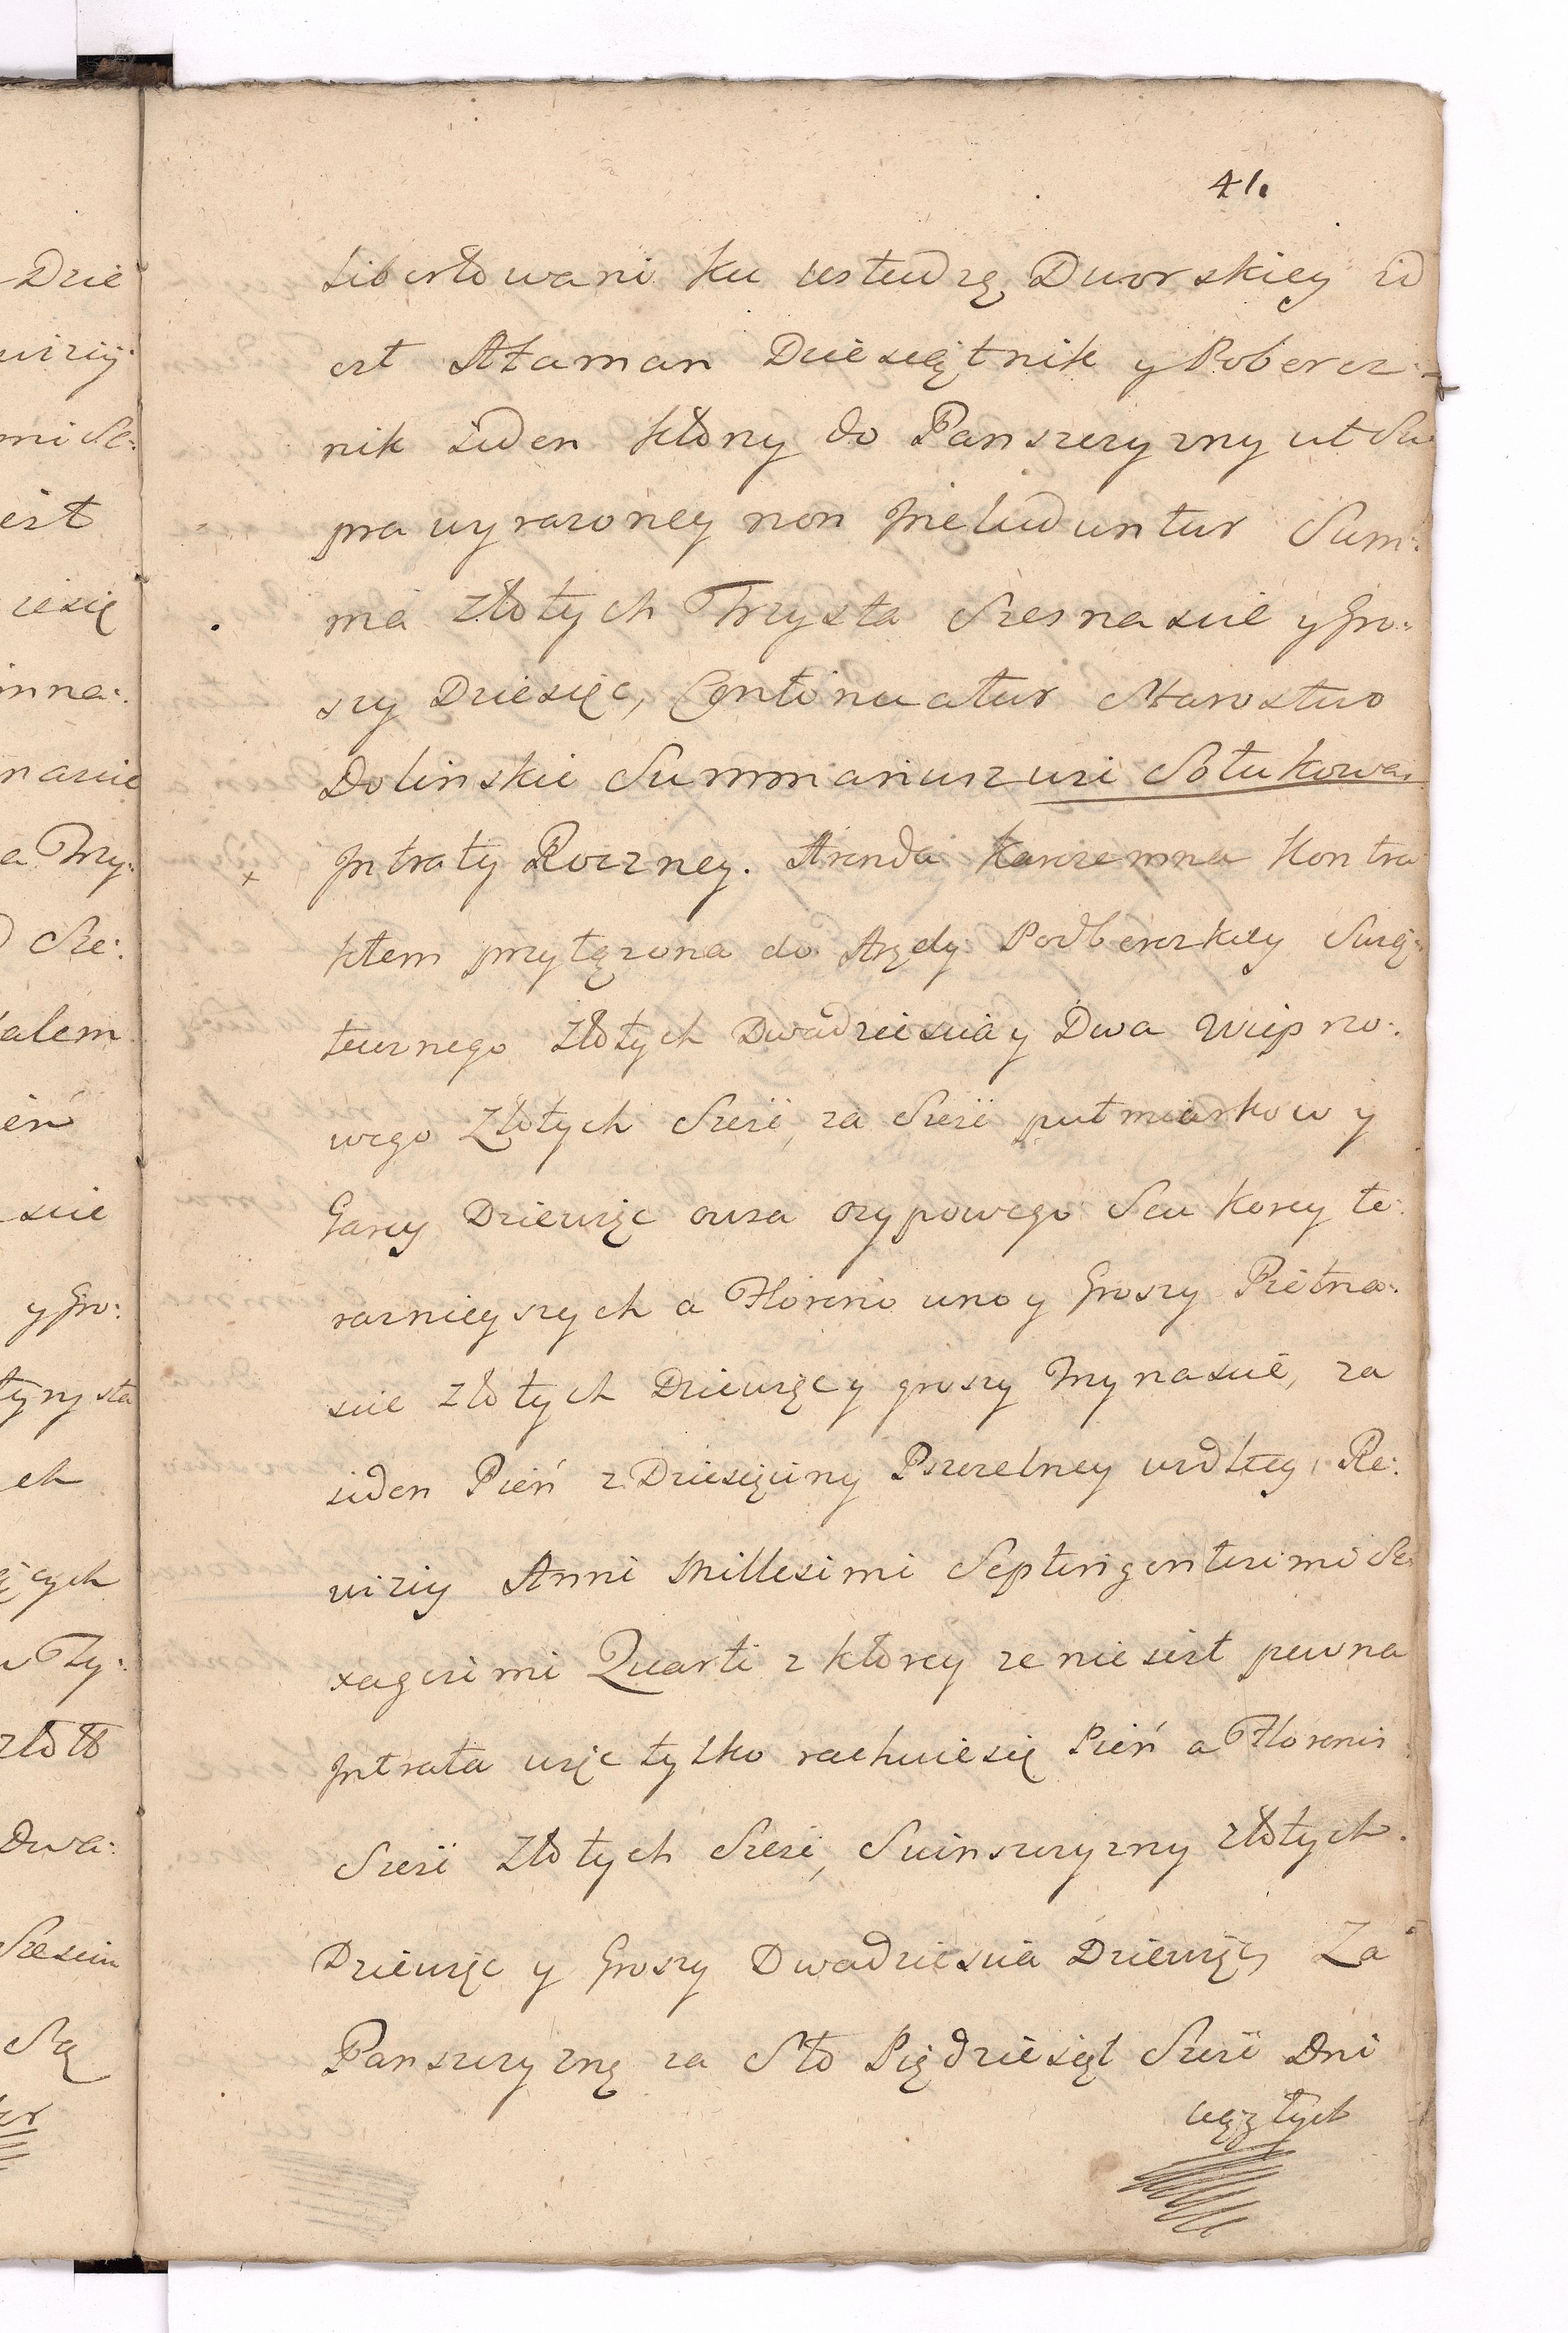 41.
Libertowani ku usłudzę Dworskiey id
est Ataman Dziesiętnik y Poberez:
nik ieden ktory do Panszczyzny ut Su
pra wyrazoney non Includuntur Sum:
ma złotych Trzysta Szesnascie y Gro:
szy Dziesięc, Continuatur Starostwo
Dolinskie Summariusz wsi Sołukowa
Intraty Roczney. Arenda Karczemna Kontra
ktem przyłączona do Arędy Podbereskiey Swię:
tecznego Złotych Dwadziescia y Dwa Wieprzo:
wego Złotych Szesc, za Szesc pułmiarkow y
Garcy Dziewięc owsa osypowego Seu Korcy te:
raznieyszych a Floreno uno y Groszy Piętna:
scie złotych Dziewięc y groszy Trzynascie, za
ieden Pień z Dziesięciny Pszczelney wedłuʒ Re:
wiziy Anni Millesimi Septingentesimi Se
xagesimi Quarti z ktorey ze nie iest pewna
Intrata więc tylko rachuie się Pień a Florenis
Szesc Złotych Szesc, Swinszczyzny złotych
Dziewięc y Groszy Dwadziescia Dziewięc, Za
Panszczyznę za Sto Piędziesiąt Szesc Dni
cięztych
Dzie
wiziÿ
mi Se:
iest
iesię
inna:
nascie
a Trzy:
Sze:
alem
ień
scie
y Gro:
tyrysta
ch
ęcych
w Ty:
złoto
Dwa:
Szescin
Są